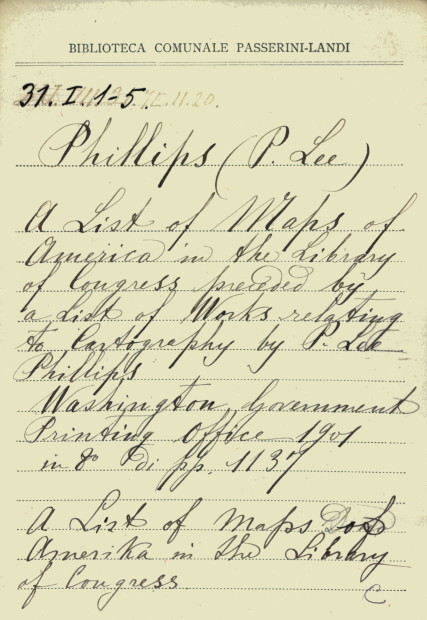 BIBLIOTECA COMUNALE PASSERINI-LANDI
31.I.1-5. II.11.20.
Phillips (P. Lee)
A List of Maps of
America in the Library
of Congress preceded by
a List of Works relating
to Cartography by P. Lee
Phillips
Washington, Government
Printing Office 1901
in 8° di pp. 1137
A List of Maps of
Amerika in the Library
of Congress
C.